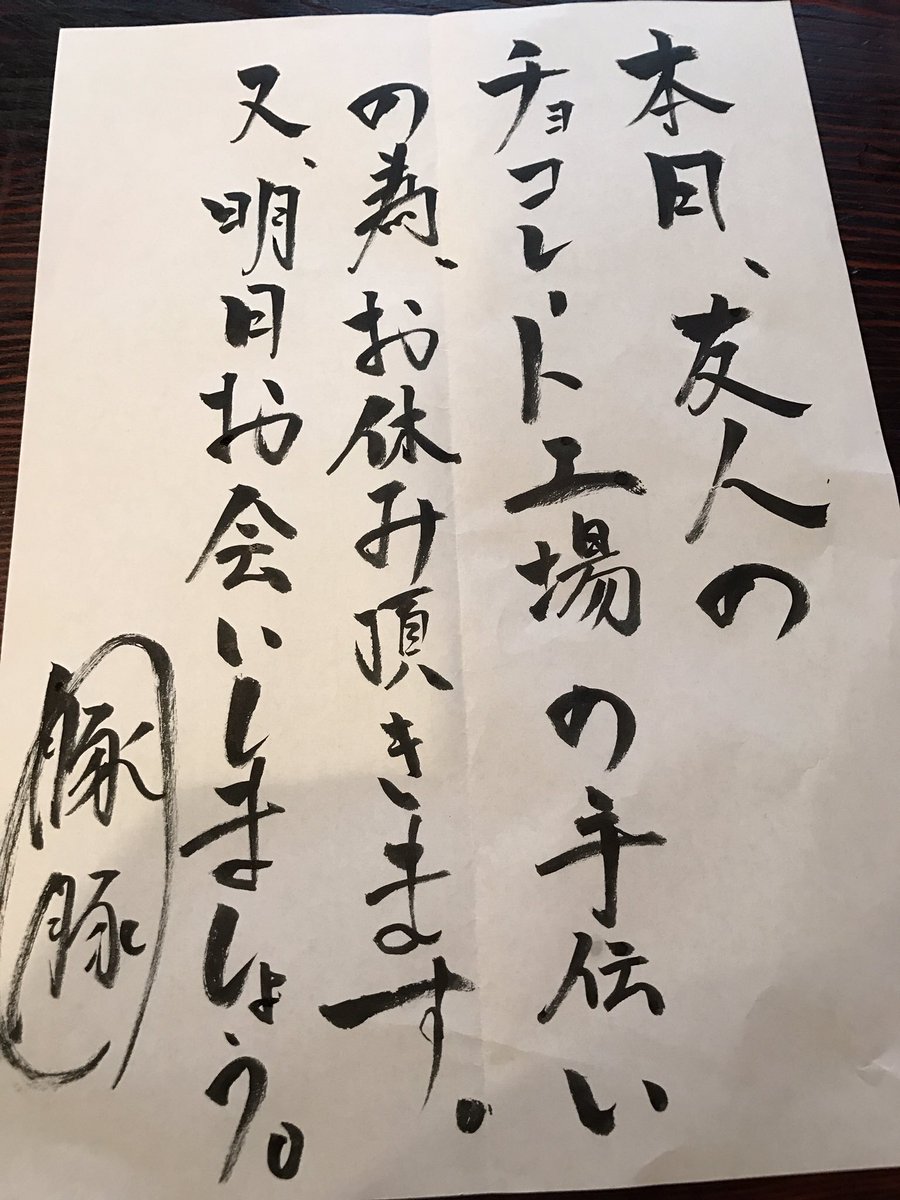 本日、友人の
チョコレート工場の手伝い
の為、お休み頂きます。
又、明日お会いしましょう。
豚豚